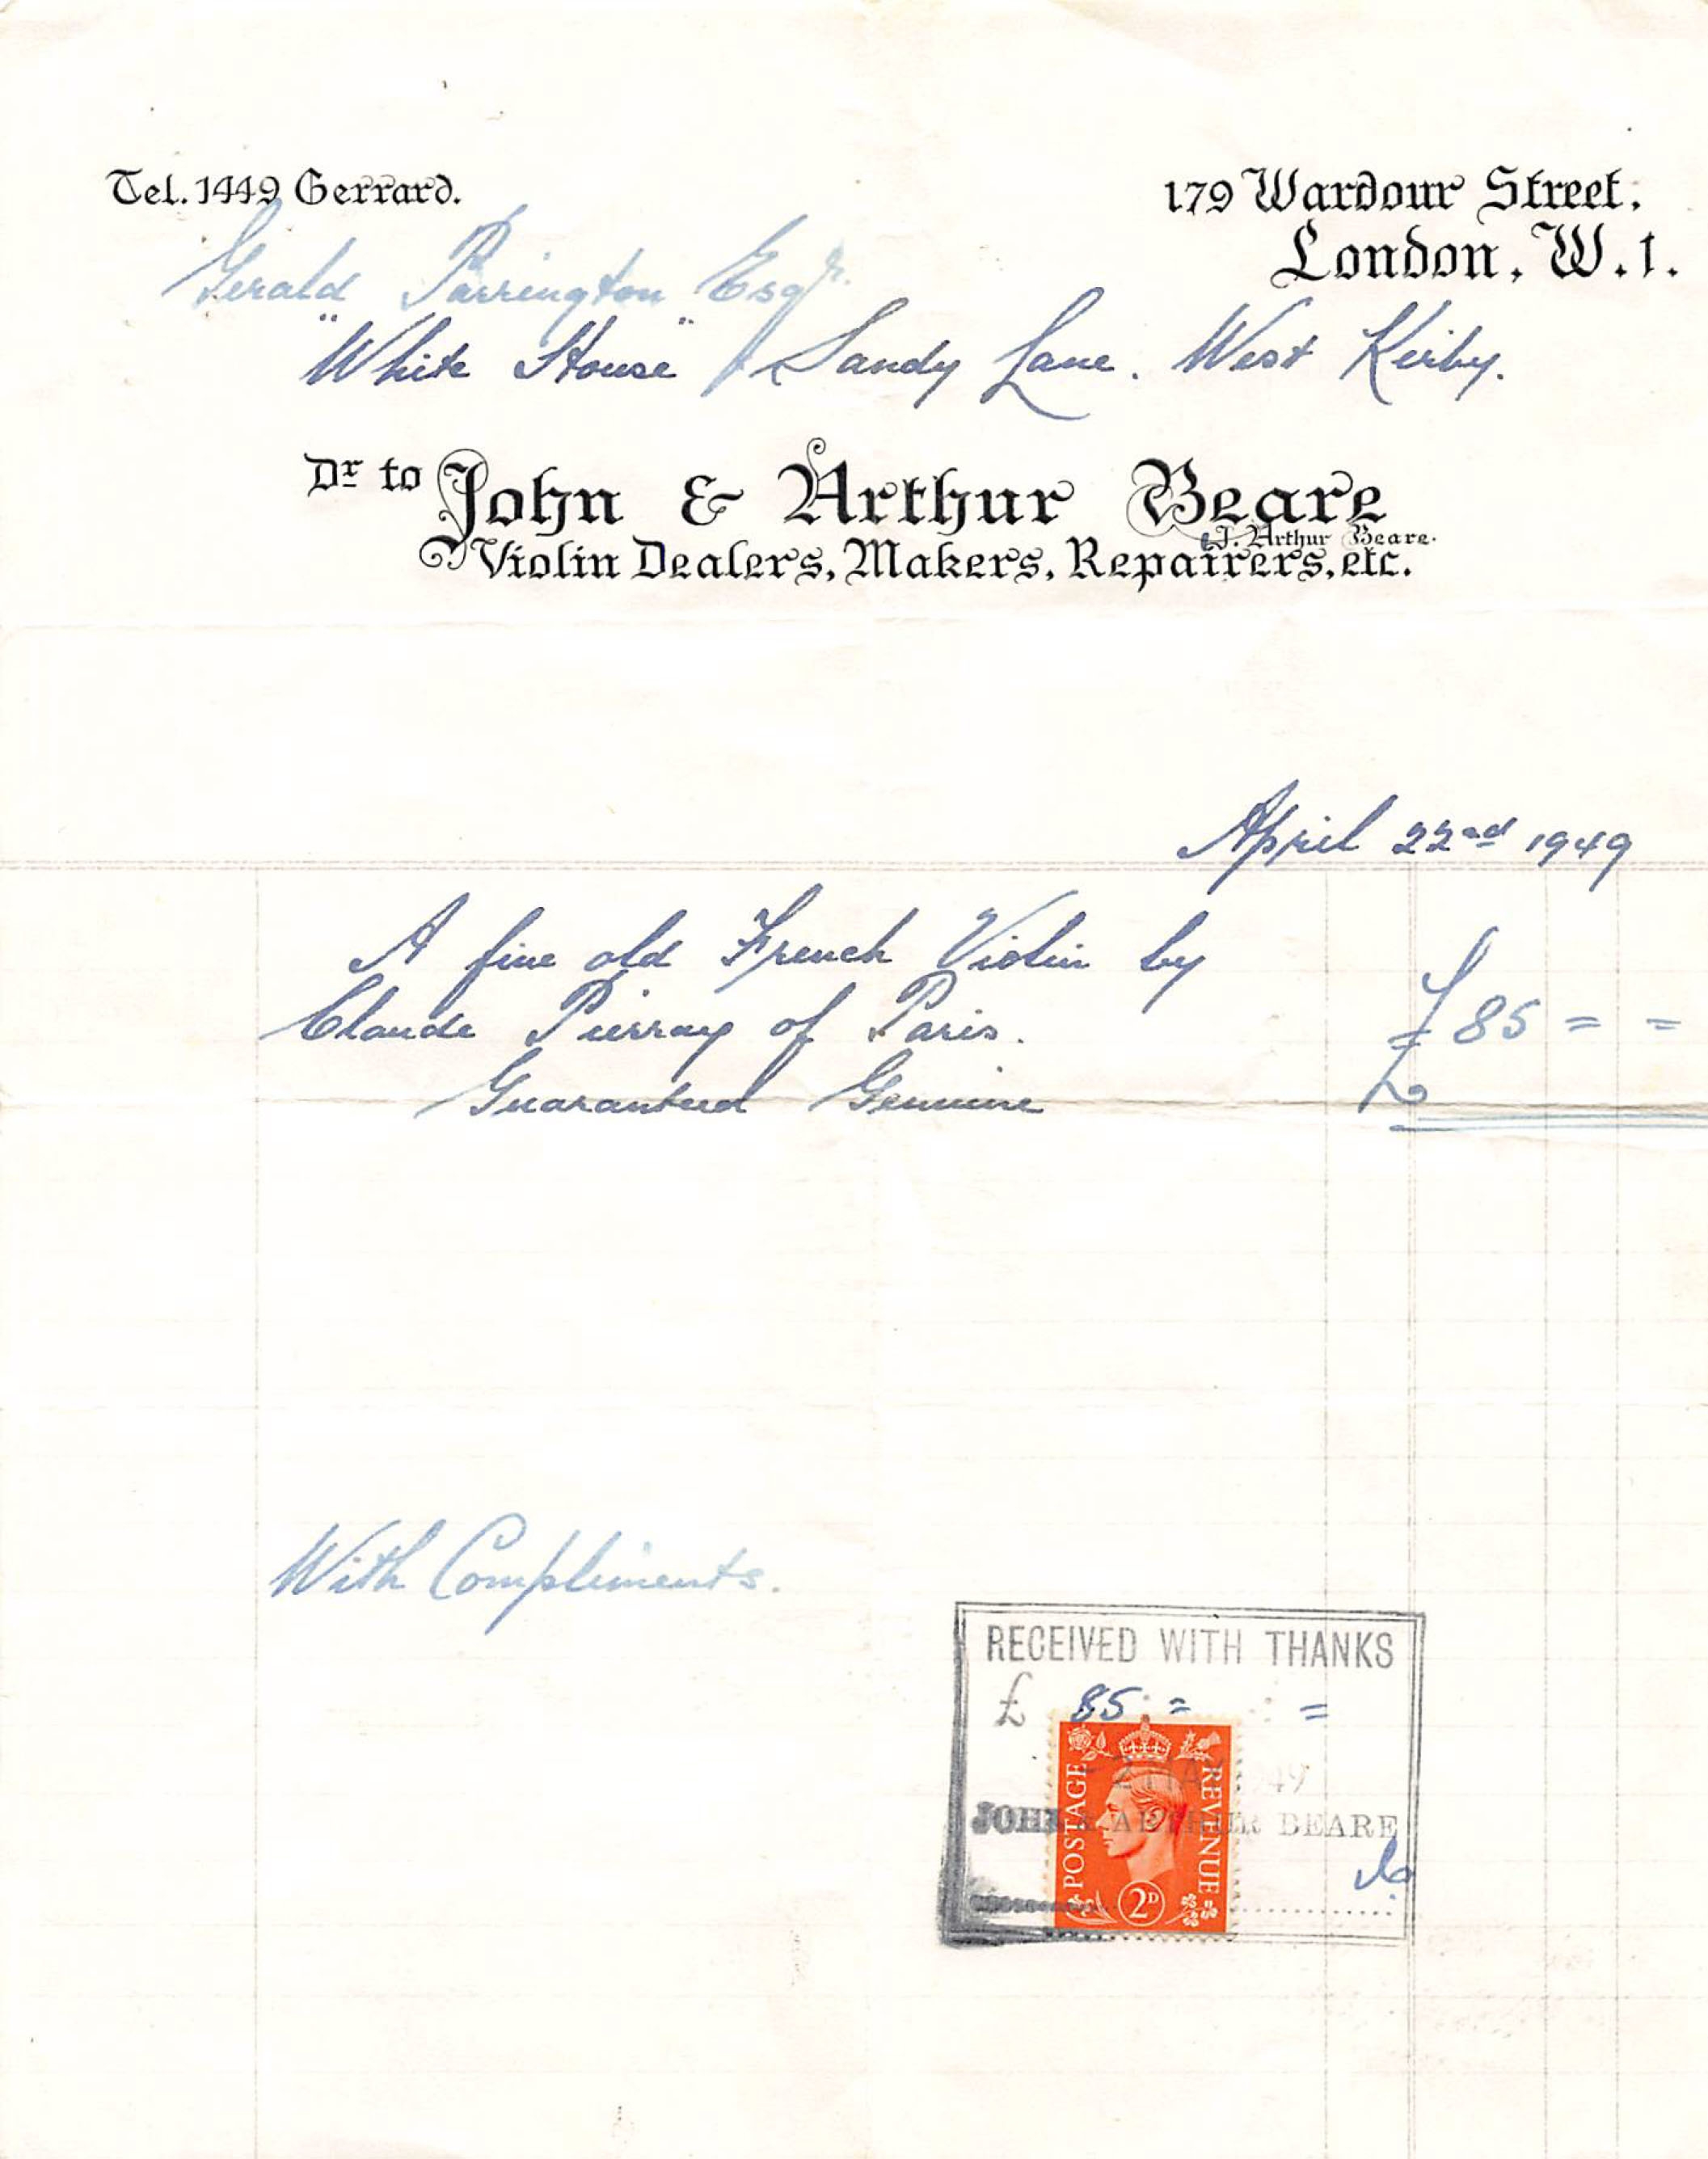 Tel. 1449 Gerrard.
179 Wardour Street,
London, W.1.
Gerald Parrington Esqr.
"White House" Sandy Lane. West Kirby.
Dr to John & Arthur Beare
J. Arthur Beare.
Violin Dealers, Makers, Repairers, etc.
April 22nd 1949
A fine old French Violin by
Claude Pierray of Paris.
£85 = =
Guaranteed Genuine
With Compliments.
RECEIVED WITH THANKS
£ 85 : = : =
- 2 MAY 1949
JOHN & ARTHUR BEARE
POSTAGE REVENUE
2D